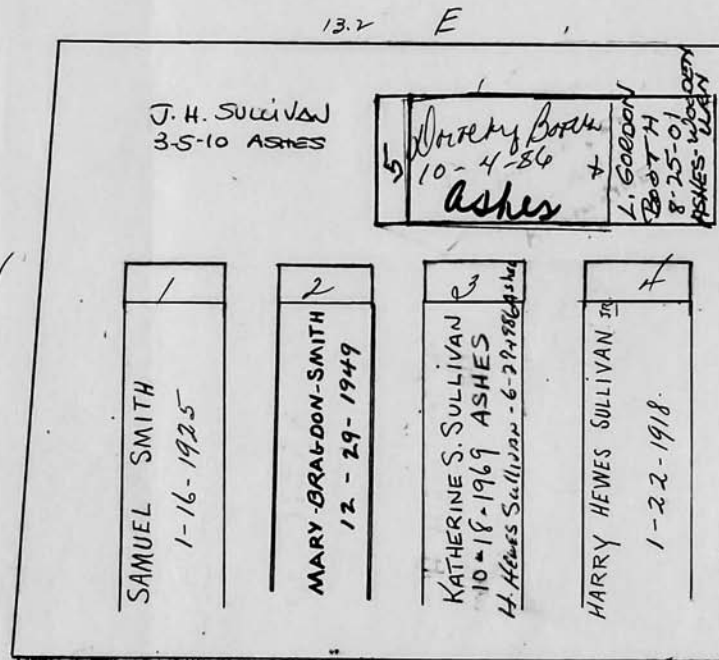 13.2 E
J. H. SULLIVAN
3-5-10 ASHES
5
Dorothy Booth
10-4-86
Ashes
L. GORDON
BOOTH
8-25-01
ASHES-WOODEN
URN
1
SAMUEL SMITH
1-16-1925
2
MARY-BRAGDON-SMITH
12-29-1949
3
KATHERINE S. SULLIVAN
10-18-1969 ASHES
H. Hewes Sullivan - 6-29-1986 Ashes
4
HARRY HEWES SULLIVAN SR.
1-22-1918.